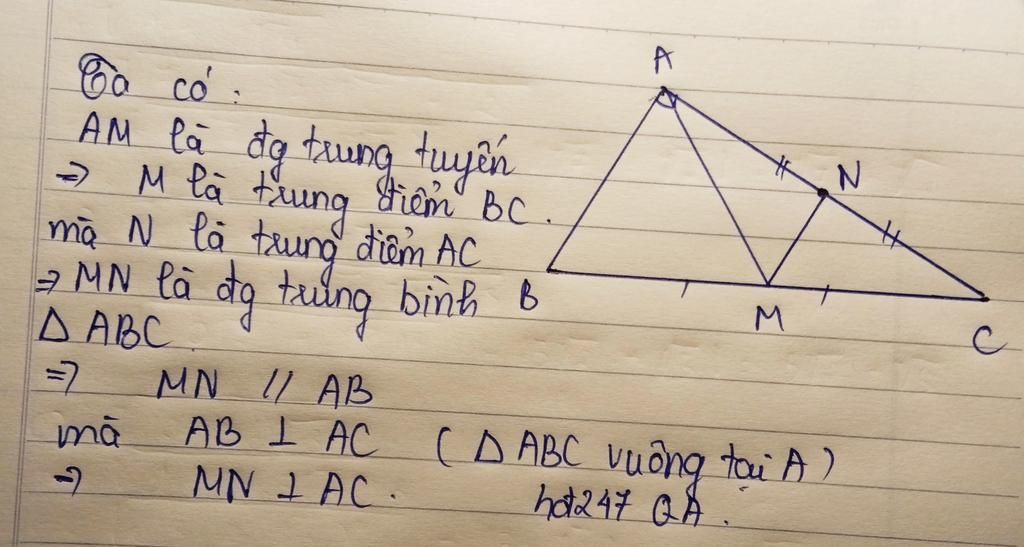 Ta có :
AM là đg trung tuyến
=> M là trung điểm BC.
mà N là trung điểm AC
=> MN là đg trung bình
Δ ABC
=> MN // AB
mà AB ⊥ AC ( Δ ABC vuông tại A )
=> MN ⊥ AC.
hd247 QA.
A
N
B
M
C